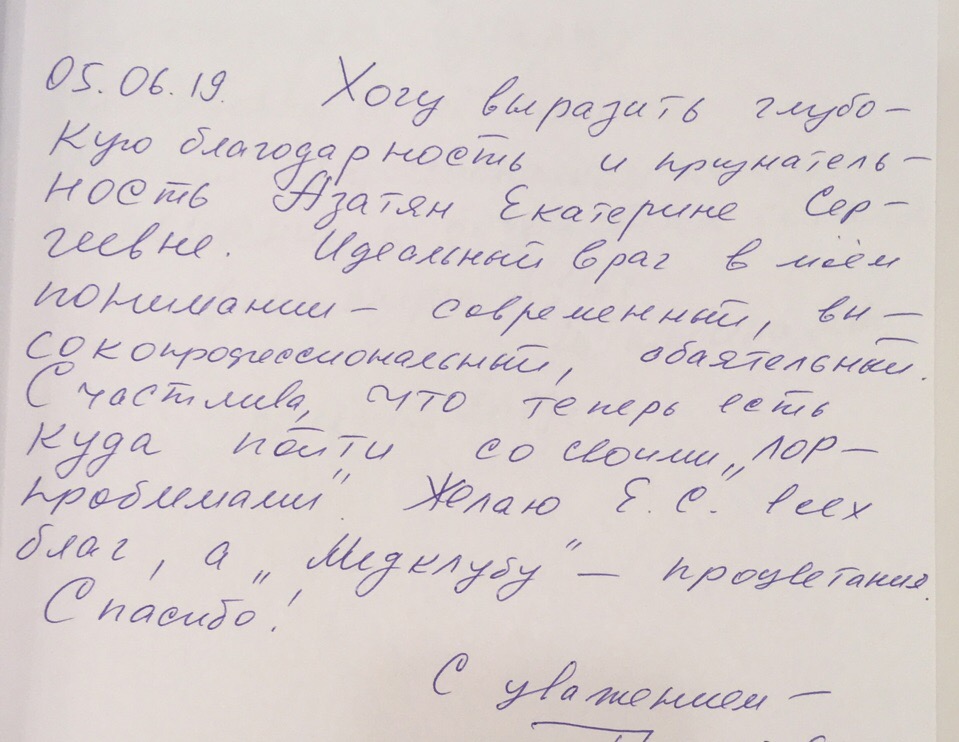 05.06.19. Хочу выразить глубо-
кую благодарность и признатель-
ность Азатян Екатерине Сер-
геевне. Идеальный врач в моём
понимании - современный, вы-
сокопрофессиональный, обаятельный.
Счастлива, что теперь есть
куда пойти со своими „ЛОР-
проблемами". Желаю Е. С. всех
благ, а „Медклубу" - процветания.
Спасибо!
С уважением -